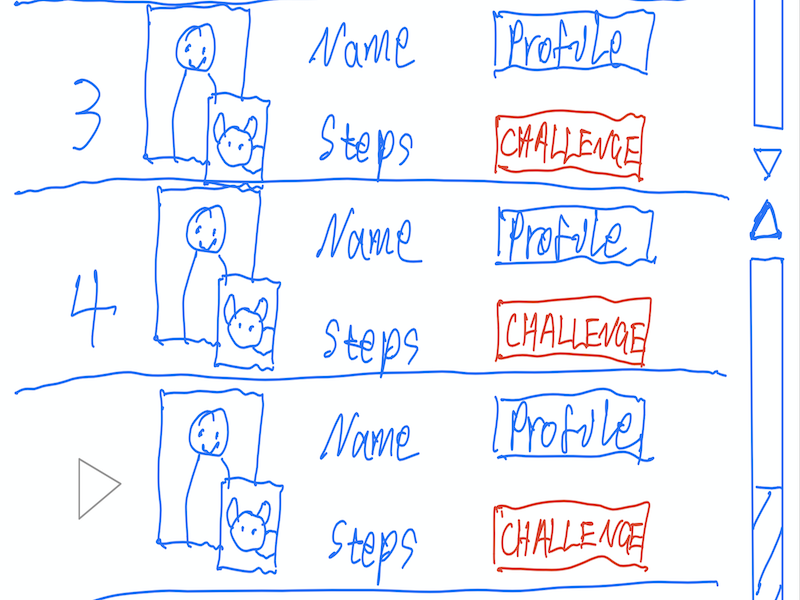 Name Profile
3
Steps CHALLENGE
Name Profile
4
Steps CHALLENGE
Name Profile
Steps CHALLENGE